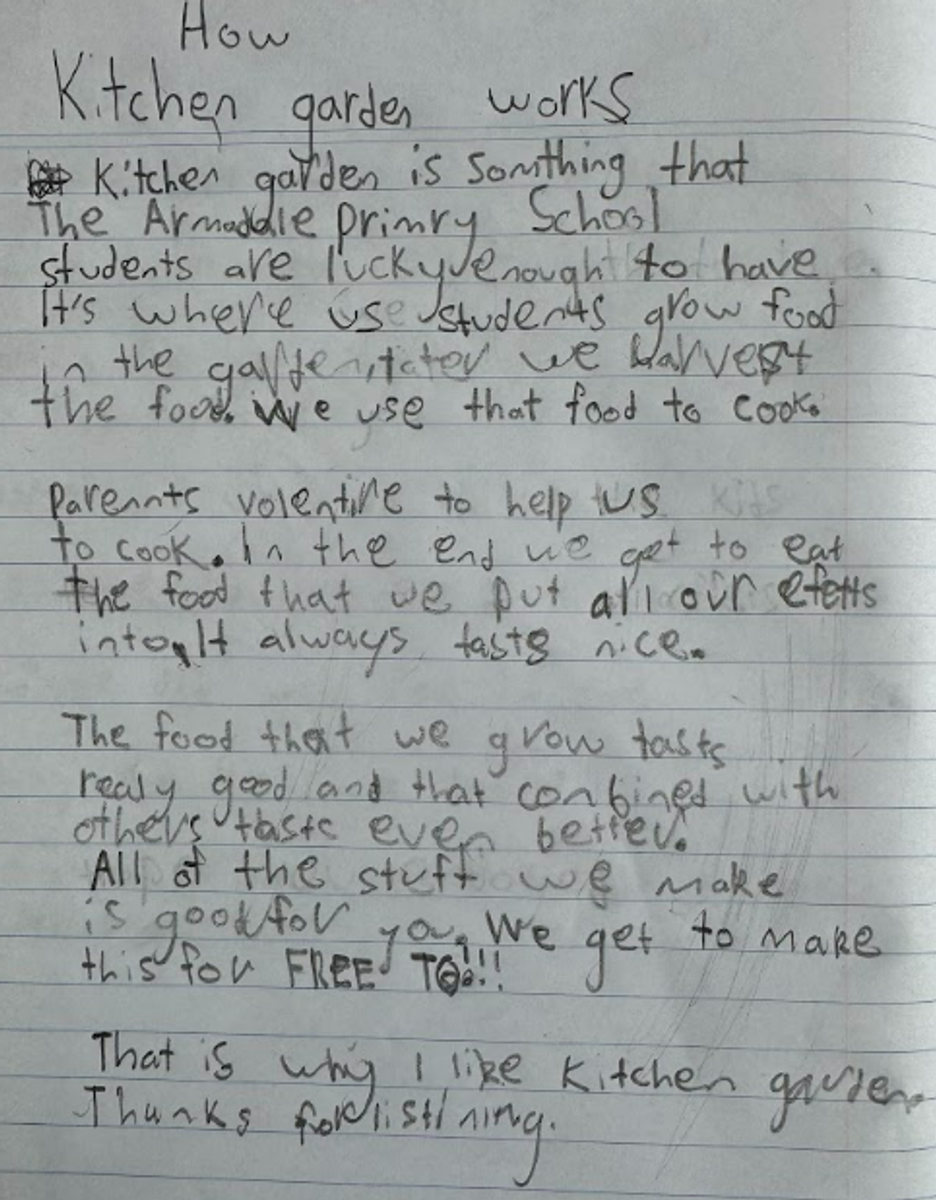 How
Kitchen garden works
Kitchen garden is somthing that
The Armaddle primry School
students are lucky enough to have
It's where use students grow food
in the garden, later we harvest
the food. We use that food to cook.
Parennts volentire to help us
to cook. In the end we get to eat
the food that we put all our efetts
into. It always tasts nice.
The food that we grow tasts
realy good and that combined with
others taste even better.
All of the stuff we make
is good for you. We get to make
this for FREE TO!!!
That is why I like Kitchen garden.
Thanks for listining.